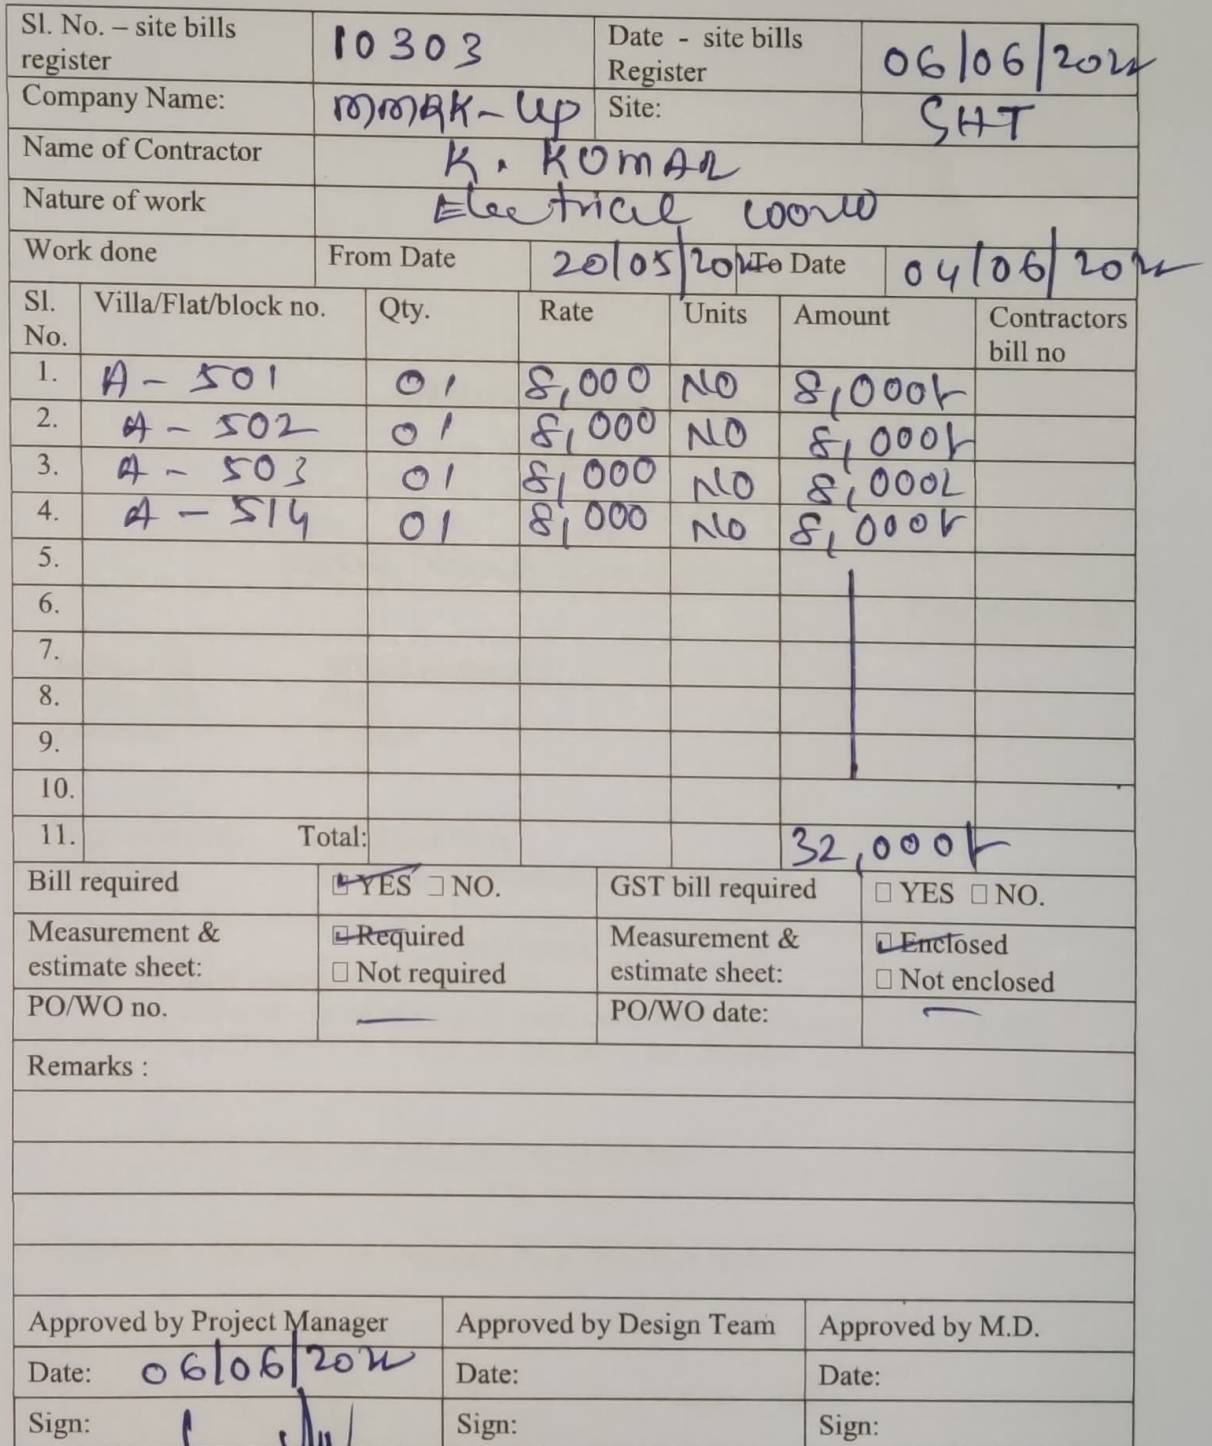 Sl. No. – site bills register 10303 Date - site bills Register 06/06/2022
Company Name: MMRK-Up Site: SHT
Name of Contractor K. KUMAR
Nature of work Electrical work
Work done From Date 20/05/2022 To Date 04/06/2022
Sl. No. Villa/Flat/block no. Qty. Rate Units Amount Contractors bill no
1. A - 501 01 8,000 NO 8,000/-
2. A - 502 01 8,000 NO 8,000/-
3. A - 503 01 8,000 NO 8,000/-
4. A - 514 01 8,000 NO 8,000/-
5.
6.
7.
8.
9.
10.
11. Total: 32,000/-
Bill required ☑ YES ☐ NO. GST bill required ☐ YES ☐ NO.
Measurement & estimate sheet: ☑ Required ☐ Not required Measurement & estimate sheet: ☑ Enclosed ☐ Not enclosed
PO/WO no. — PO/WO date: —
Remarks :
Approved by Project Manager Approved by Design Team Approved by M.D.
Date: 06/06/2022 Date: Date:
Sign: Sign: Sign: